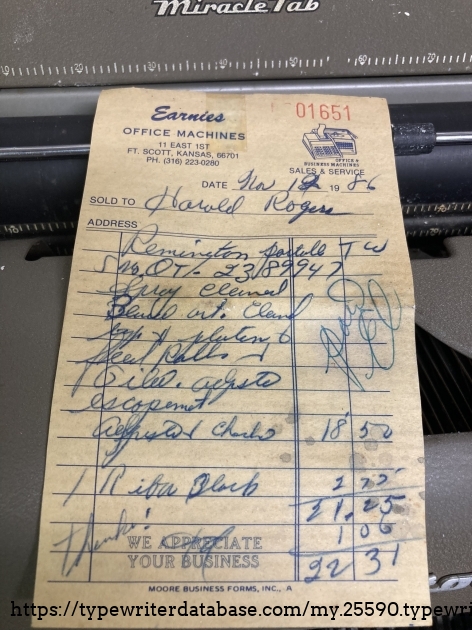 Miracle Tab
Earnies
OFFICE MACHINES
11 EAST 1ST
FT. SCOTT, KANSAS, 66701
PH. (316) 223-0280
01651
OFFICE &
BUSINESS MACHINES
SALES & SERVICE
DATE Nov 12 1986
SOLD TO Harold Rogers
ADDRESS
Remington portable T W
Spray cleaned
feed Rolls
Oiled. adjusted
18 50
1 Ribn Black 2 75
21.25
Thanks! 1 06
WE APPRECIATE
YOUR BUSINESS 22 31
MOORE BUSINESS FORMS, INC., A
https://typewriterdatabase.com/my.25590.typewri